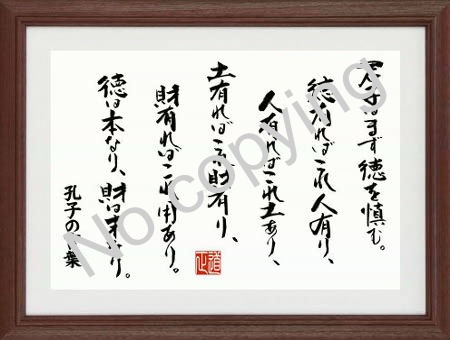 君子はまず徳を慎む。
徳有ればこれ人有り、
人有ればこれ土あり、
土有ればこれ財有り、
財有ればこれ用あり。
徳は本なり、財は末なり。
孔子の言葉
No copying